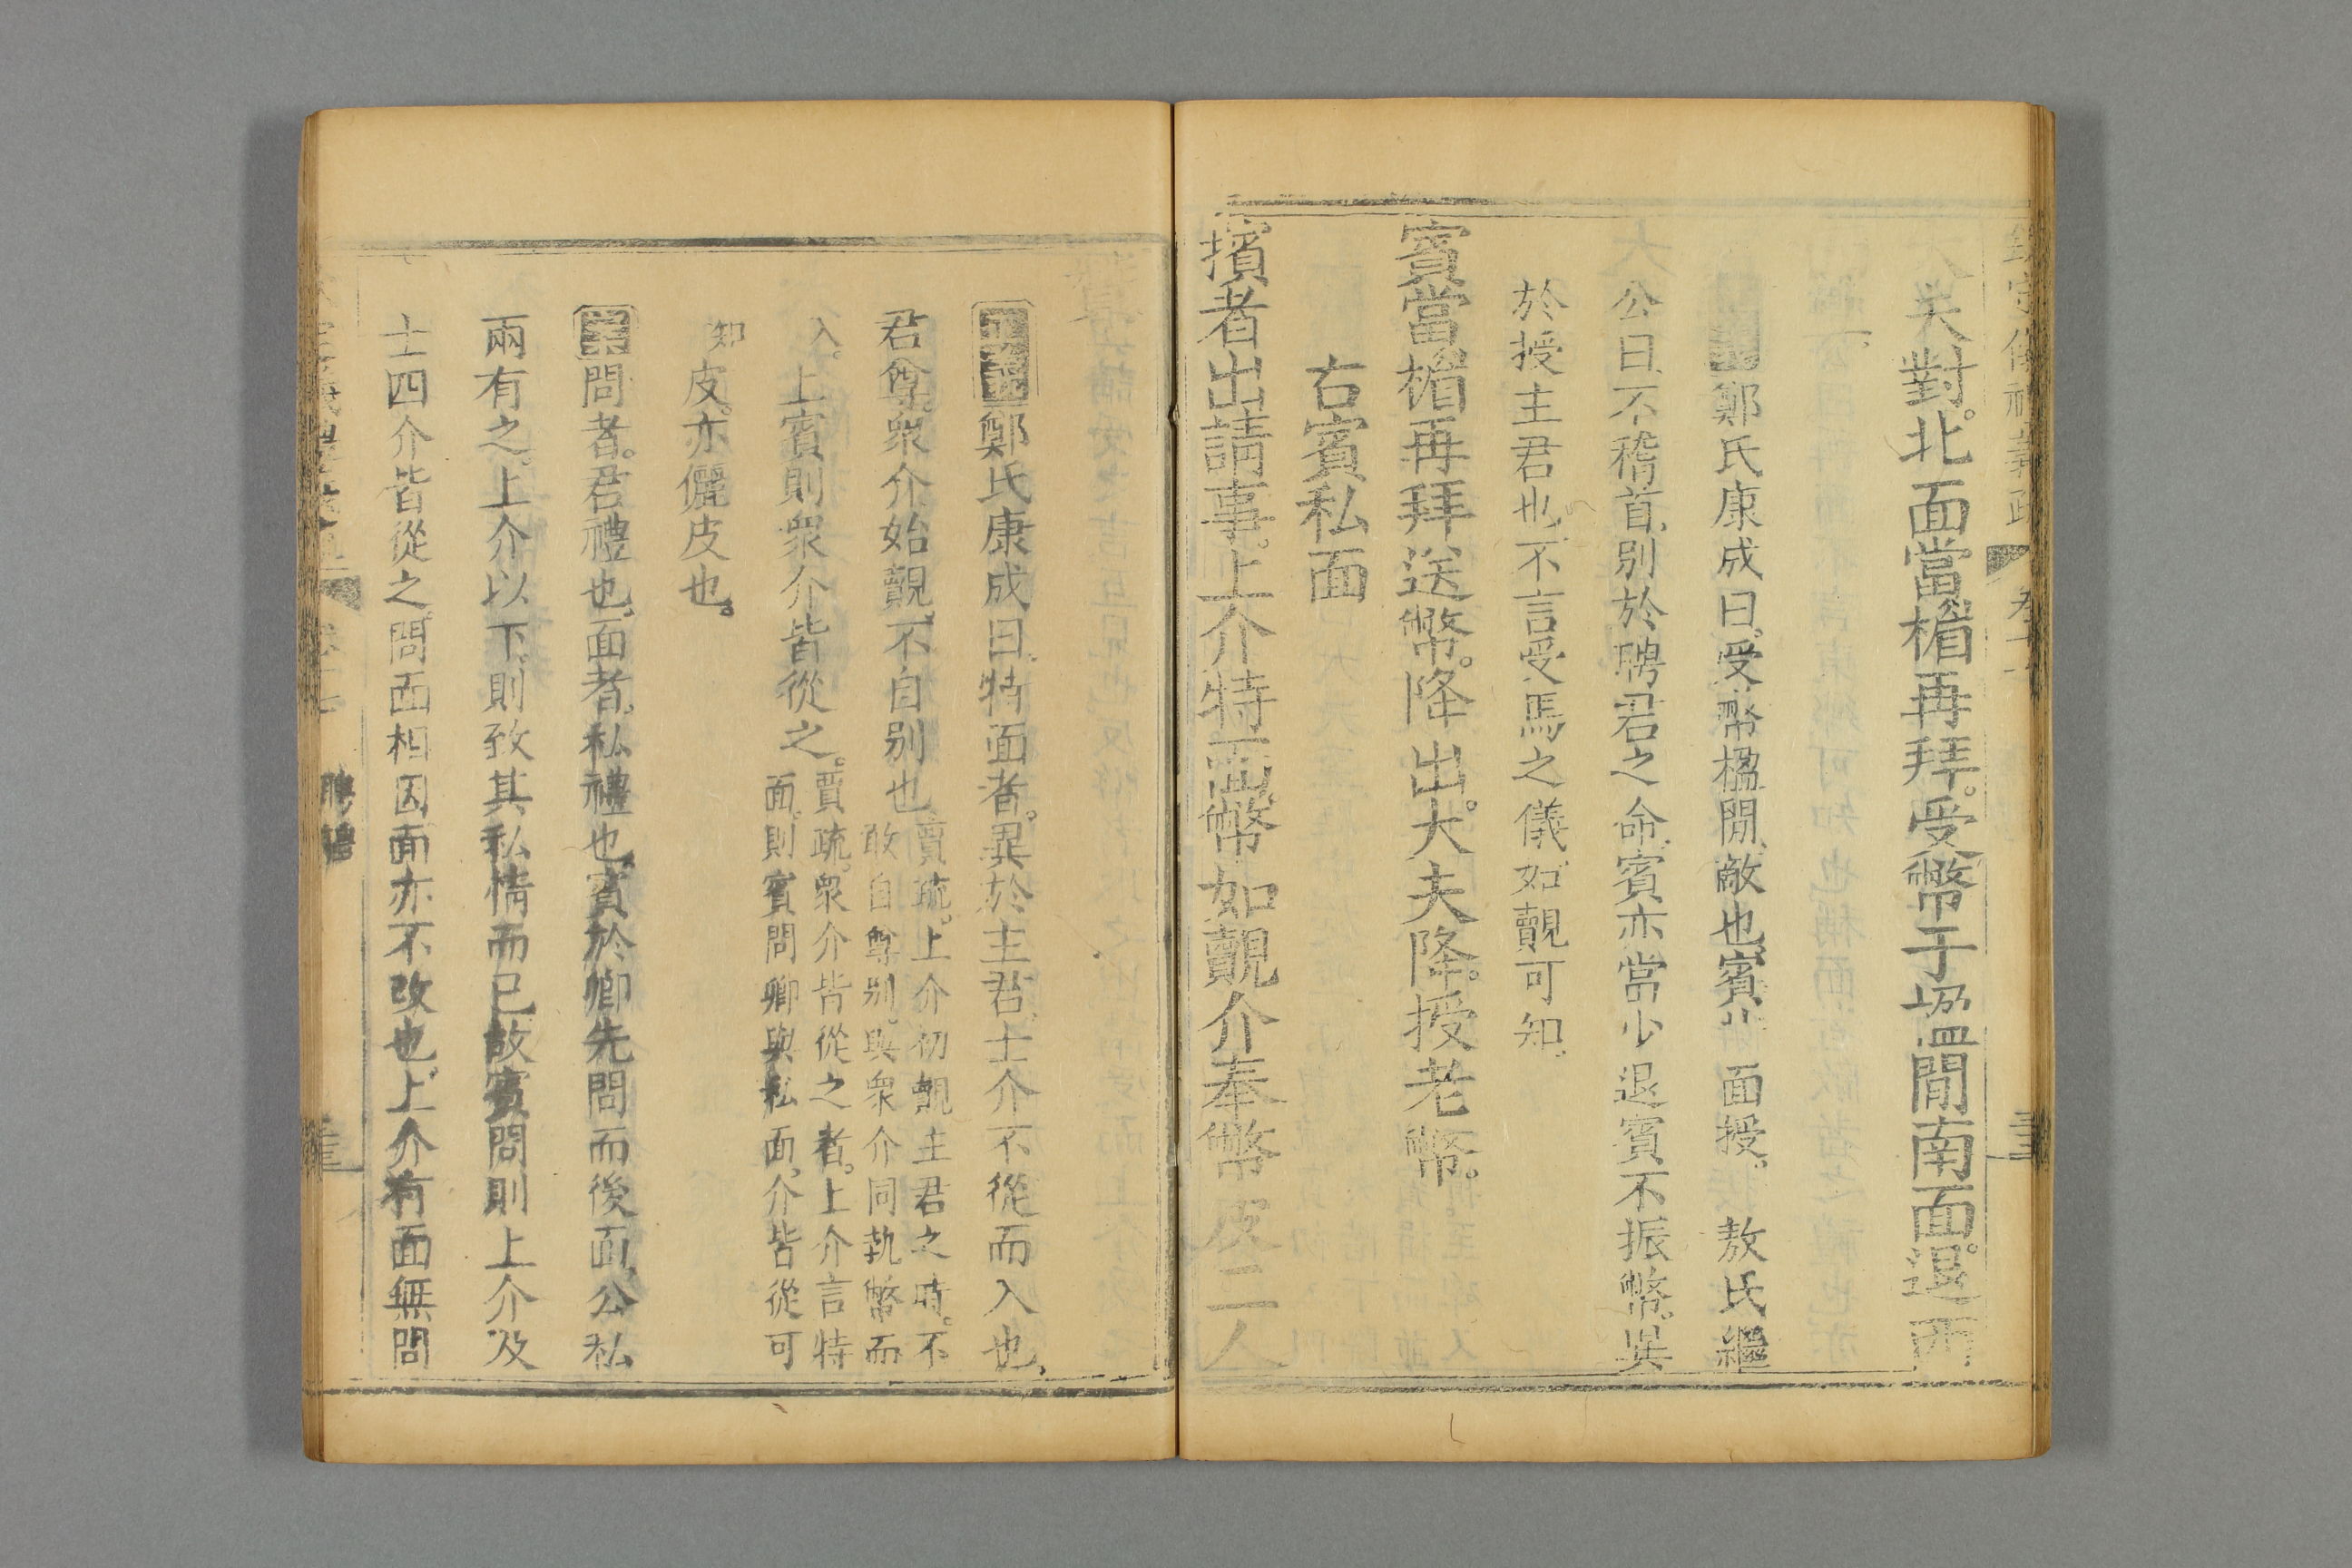 夫對北面當楣再拜受幣于楹間南面退西
鄭氏康成曰受幣楹間敵也賓 面授 敖氏繼
公曰不稽首別於聘君之命賓亦當少退賓不振幣異
於授主君也不言受馬之儀如覿可知
賓當楣再拜送幣降出大夫降授老幣
右賓私面
擯者出請事上介特面幣如覿介奉幣皮二人
鄭氏康成曰特面者異於主君士介不從而入也
君尊眾介始覿不自別也
賈疏上介初覿主君之時不
敢自尊別與眾介同執幣而
入上賓則眾介皆從之
賈疏眾介皆從之者上介言特
面則賓問卿與私面介皆從可
知
皮亦儷皮也
問者君禮也面者私禮也賓於卿先問而後面公私
兩有之上介以下則致其私情而已故賓問則上介及
士四介皆從之問面相因面亦不改也上介有面無問
聘禮